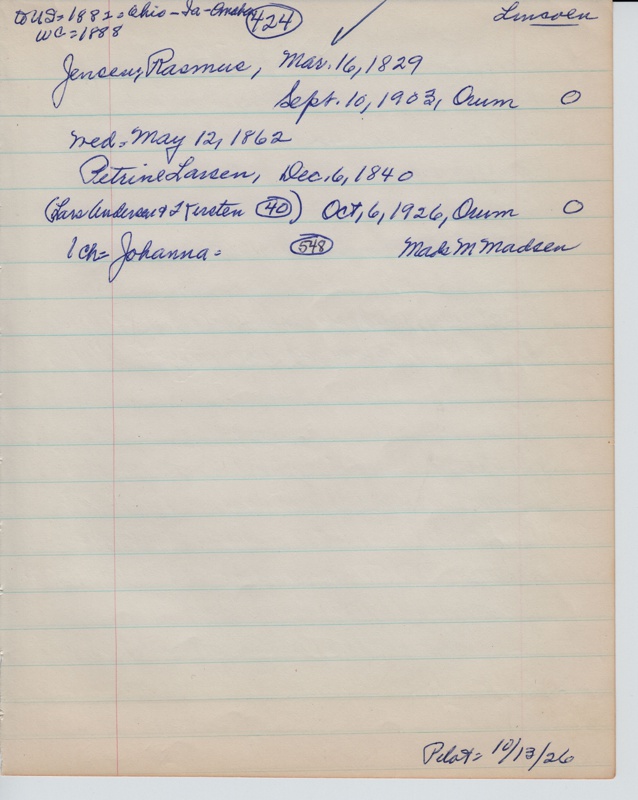 to US = 1881 = Ohio - Ia - Omaha 424 Lincoln
WC = 1888
Jensen, Rasmus, Mar. 16, 1829
Sept. 10, 1903, Orum O
Wed = May 12, 1862
Petrine Larsen, Dec. 6, 1840
(Lars Andersen & Kirsten 40) Oct, 6, 1926, Orum O
1 ch = Johanna = 548 Mads M Madsen
Pilot = 10/13/26